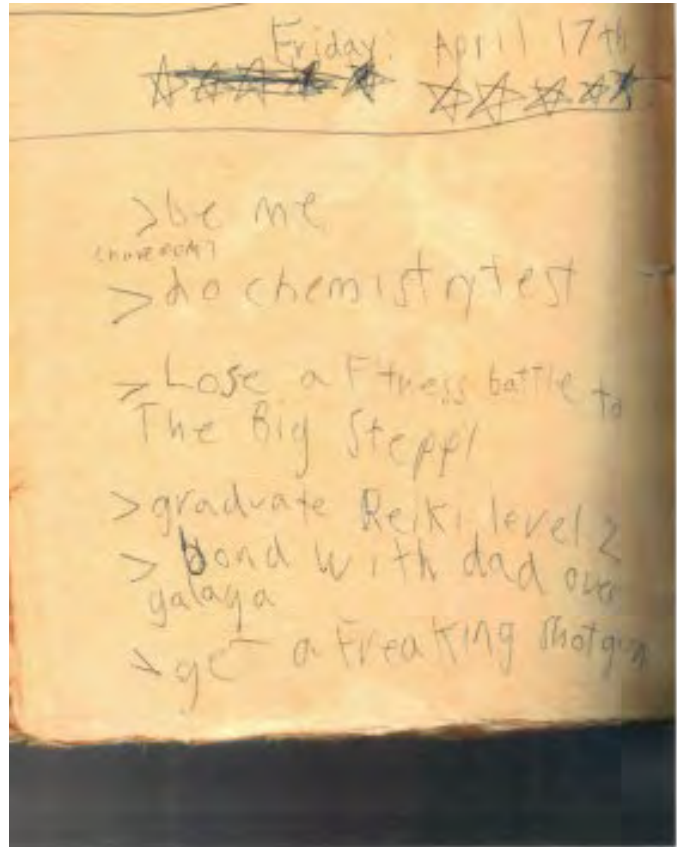 Friday: April 17th
>be me
>do chemistry test
>Lose a Fitness battle to
The Big Steppl
>graduate Reiki level 2
>bond with dad over
galaga
>get a freaking shotgun